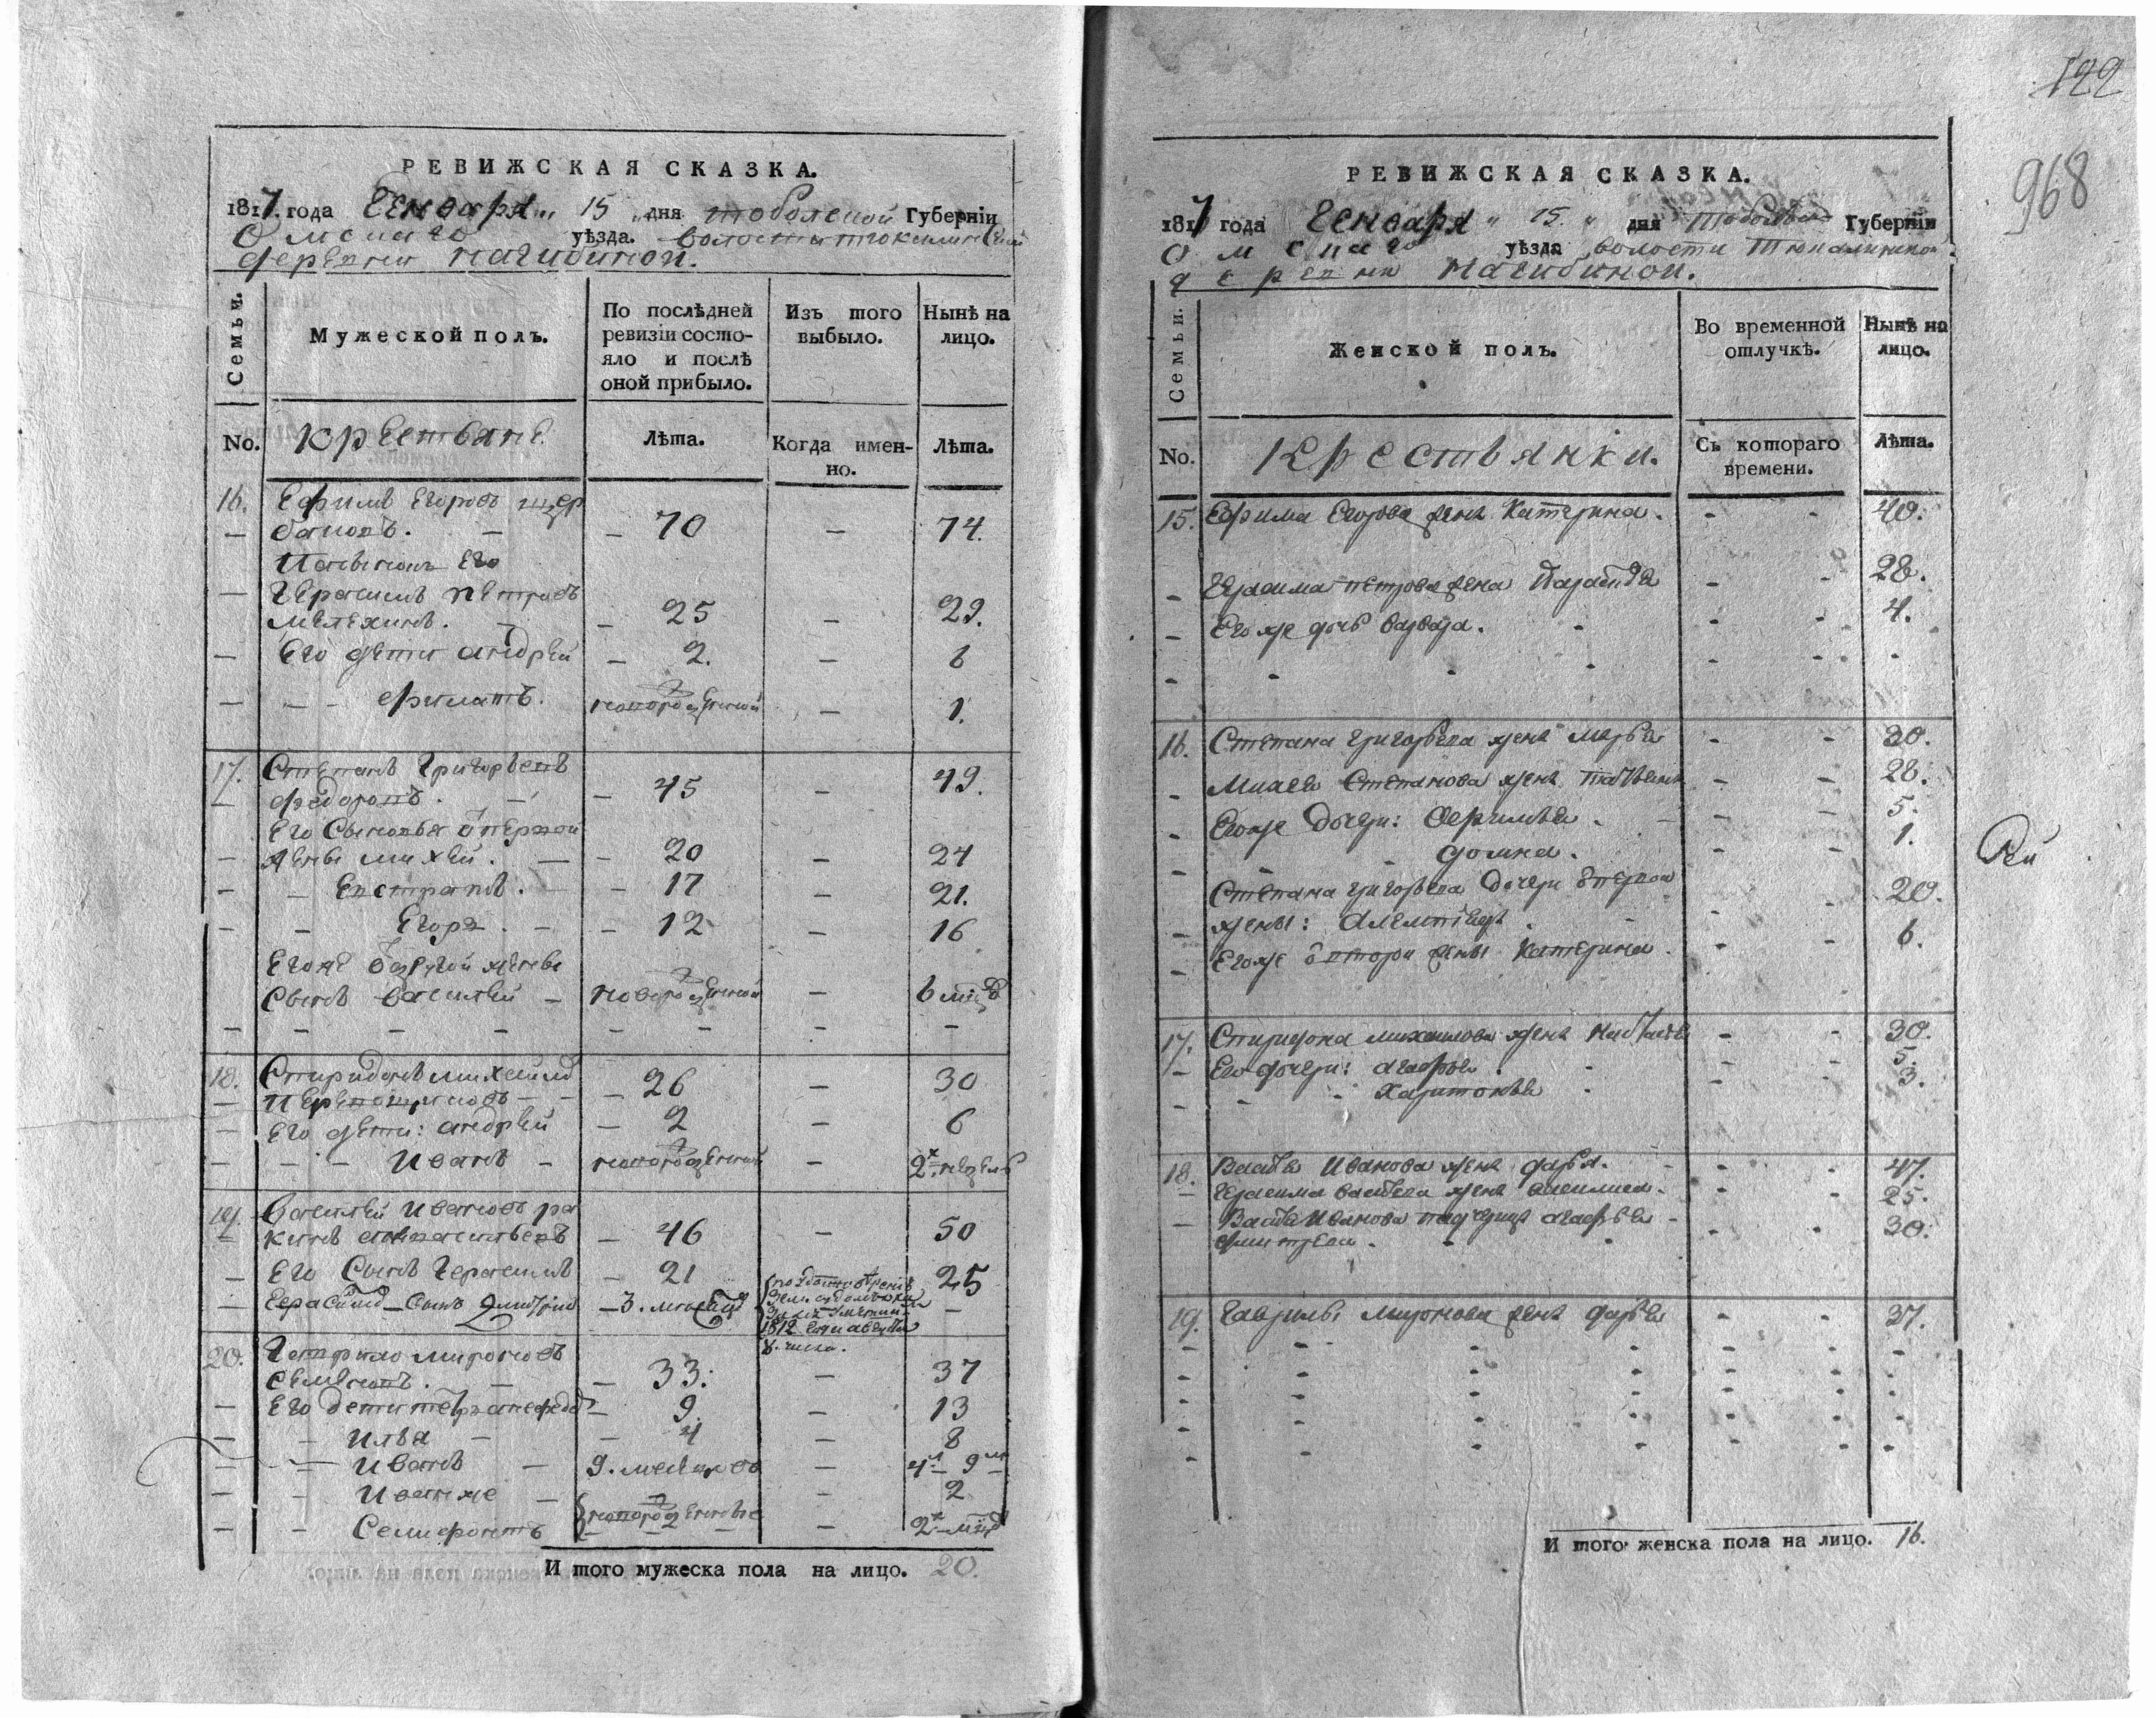 РЕВИЖСКАЯ СКАЗКА.
1817. года Генваря 15 дня тобольской Губерніи
Омскаго уѣзда. волости тюкалинской
деревни Нагибиной.
Семьи.
Мужеской полъ.
По послѣдней ревизіи состояло и послѣ оной прибыло.
Изъ того выбыло.
Нынѣ на лицо.
No. крестьяне
Лѣта.
Когда именно.
Лѣта.
16. Ефимъ Егоровъ щер
баковъ. — — 70 — 74.
Его
— Герасимъ петровъ
— 25 — 29.
— Его дети андрей — 2. — 6
— — — новорожденной — 1.
17. Степанъ Григорьевъ
— федоровъ. — — 45 — 49.
Его Сыновья ѿ первой
— жены михей. — — 20 — 24
— — Евстратъ. — — 17 — 21.
— — Егоръ. — — 12 — 16
Егоже ѿ другой жены
Сынъ василей — новорожденной — 6 мцъ
— — — — — — — —
18. Спиридонъ михайловъ
— — — 26 — 30
— Его дети: андрей — 2 — 6
— — — Иванъ — новорожденной — 2х недель
19. василей Ивановъ ра
кинъ — 46 — 50
— Его Сынъ Герасимъ — 21 25
— Герасима — Сынъ Дмитрий — 3. месяца —
1812 года августа
8. числа.
20. Гаврило мироновъ
Семеновъ. — — 33. — 37
— Его дети — 9. — 13
— — Илья — — 4 — 8
— — Иванъ — 9. месяцовъ — 4л 9м
— — Иванже — — 2
— — Семифонтъ новорожденные — 2х мцъ
И того мужеска пола на лицо. 20.
122
968
РЕВИЖСКАЯ СКАЗКА.
1817 года Генваря 15. дня Тобольской Губерніи
Омскаго уѣзда волости Тюкалинской.
деревни Нагибиной.
Семьи.
Женской полъ.
Во временной отлучкѣ.
Нынѣ на лицо.
No. Крестьянки.
Съ котораго времени.
Лѣта.
15. Ефима Егорова жена Катерина. - - 40.
- Герасима петрова жена - - 28.
- Егоже дочь варвара. - - - 4.
- - - - - -
16. Степана григорьева жена марья - - 30.
- Михея Степанова жена татьяна - - 28.
- Егоже дочери: - - 5.
- - домна. - - 1.
Степана григорьева дочери ѿ первой
- жены: - - 20.
- Егоже ѿ второй жены Катерина. - - 6.
17. Спиридона михайлова жена настасья - - 30.
- Его дочери: агафья. - - - 5.
- - - Харитонья - - - 3.
18. Василья Иванова жена дарья. - - 47.
- Герасима васильева жена - - 25.
- Василья Иванова падчерица агафья -
дмитрева. - - - - 30.
19. Гаврилы миронова жена дарья - - 37.
И того женска пола на лицо. 16.